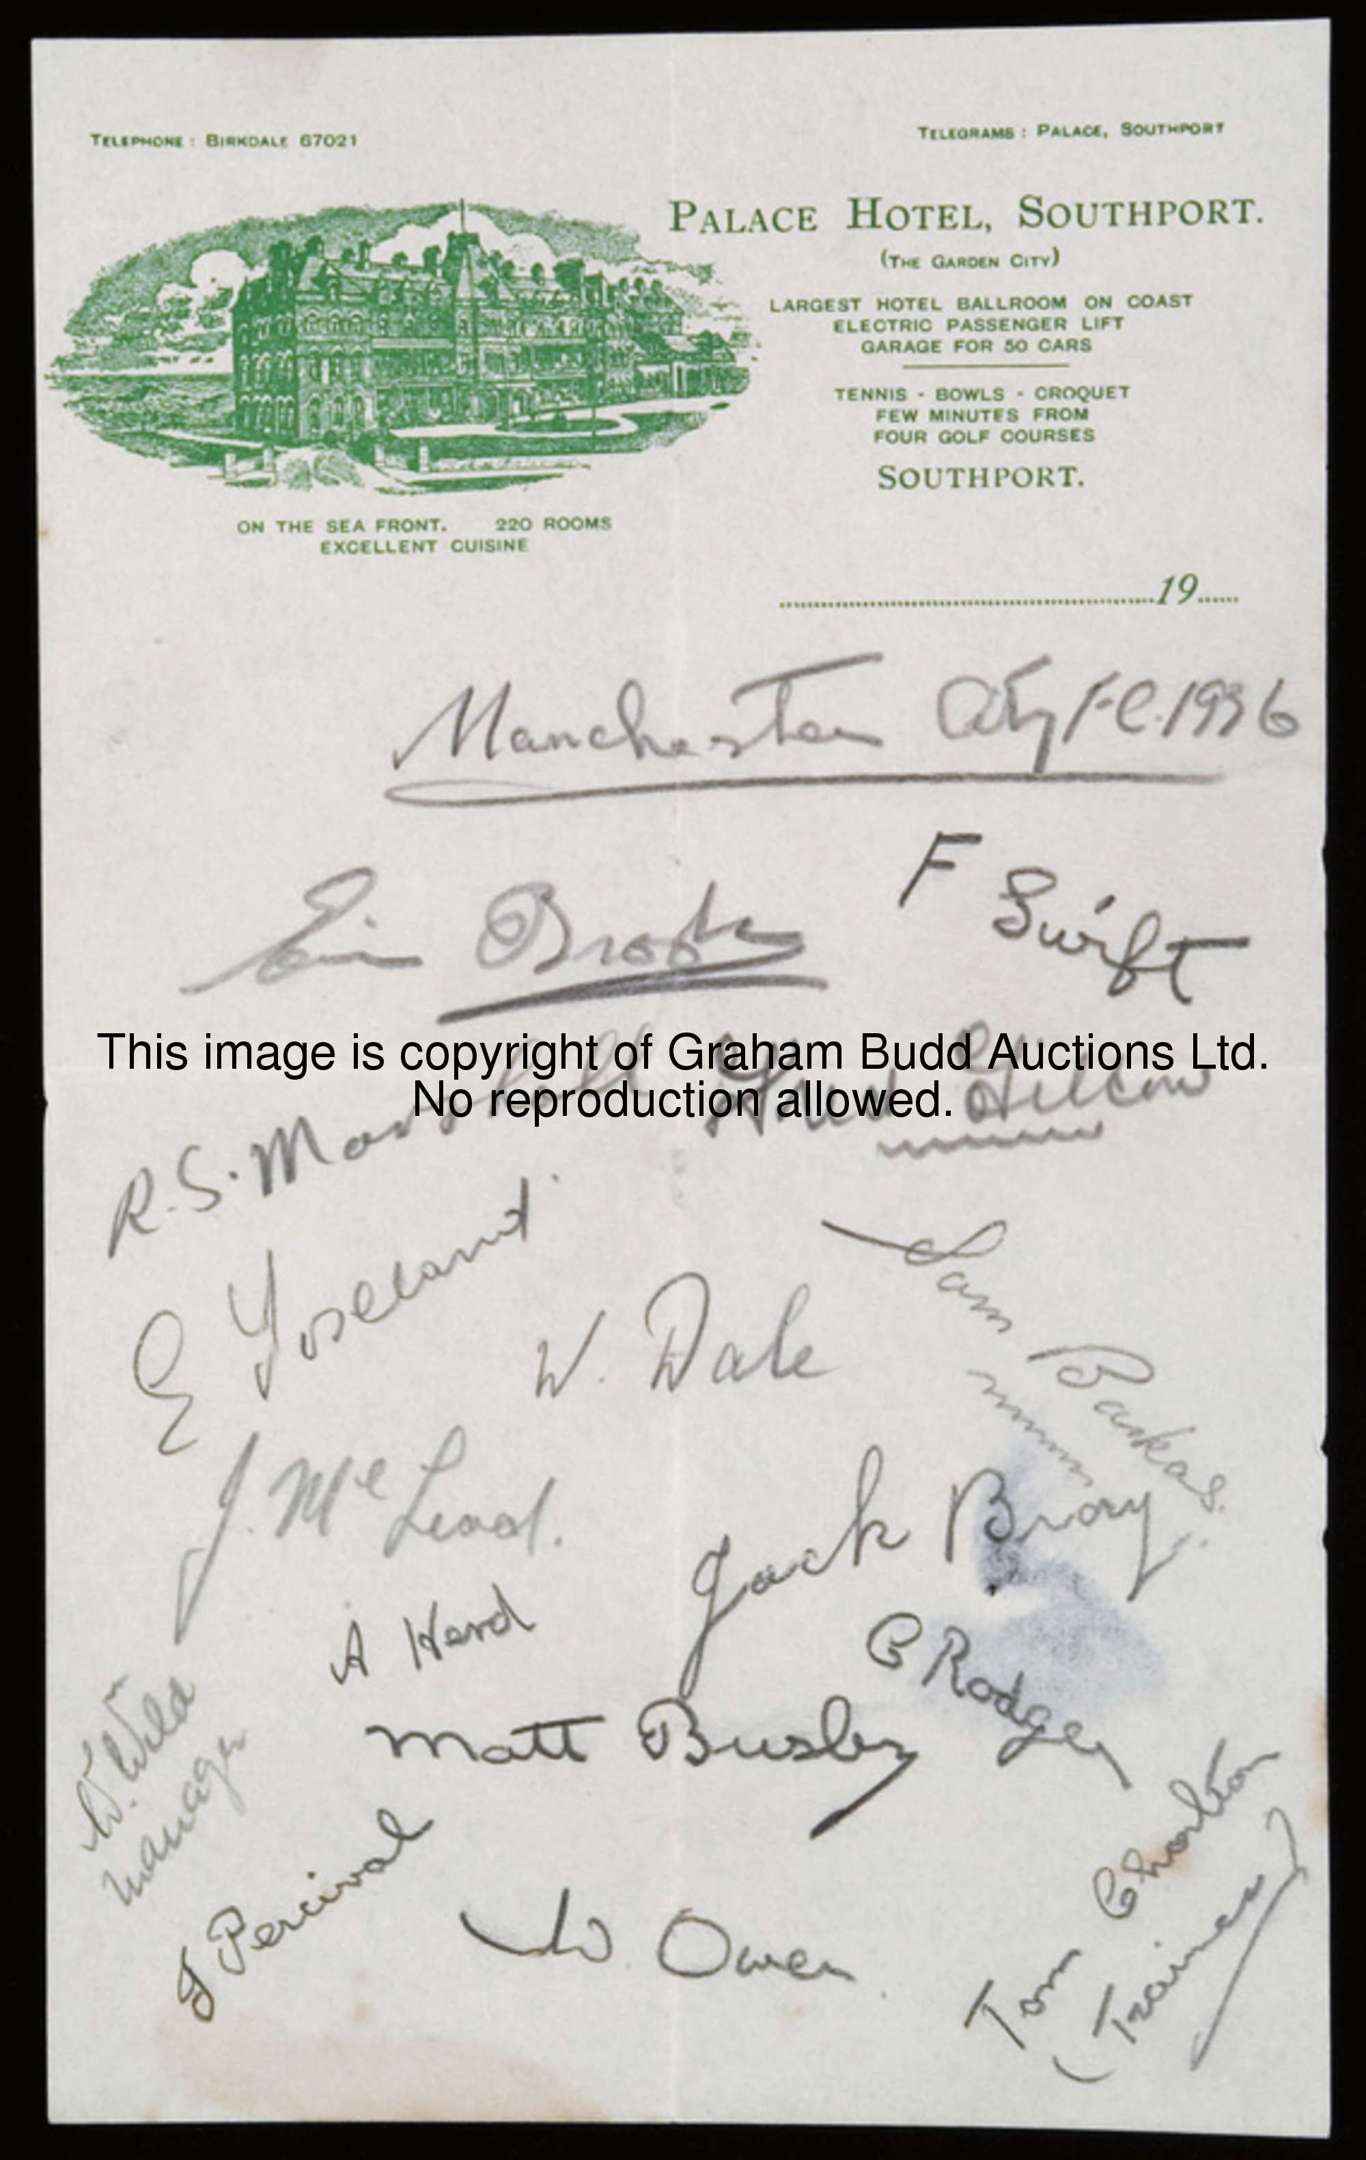 TELEPHONE : BIRKDALE 67021
TELEGRAMS : PALACE, SOUTHPORT
PALACE HOTEL, SOUTHPORT.
(THE GARDEN CITY)
LARGEST HOTEL BALLROOM ON COAST
ELECTRIC PASSENGER LIFT
GARAGE FOR 50 CARS
TENNIS - BOWLS - CROQUET
FEW MINUTES FROM
FOUR GOLF COURSES
SOUTHPORT.
ON THE SEA FRONT. 220 ROOMS
EXCELLENT CUISINE
19
Manchester City F.C. 1936
Eric Brook
F Swift
This image is copyright of Graham Budd Auctions Ltd.
No reproduction allowed.
R. S. Marshall
E Toseland
Sam Barkas.
W. Dale
J. McLeod.
Jack Bray
A Herd
C Rodger
W. Wild
Manager
Matt Busby
J Percival
W. Owen
Tom Chorlton
(Trainer)